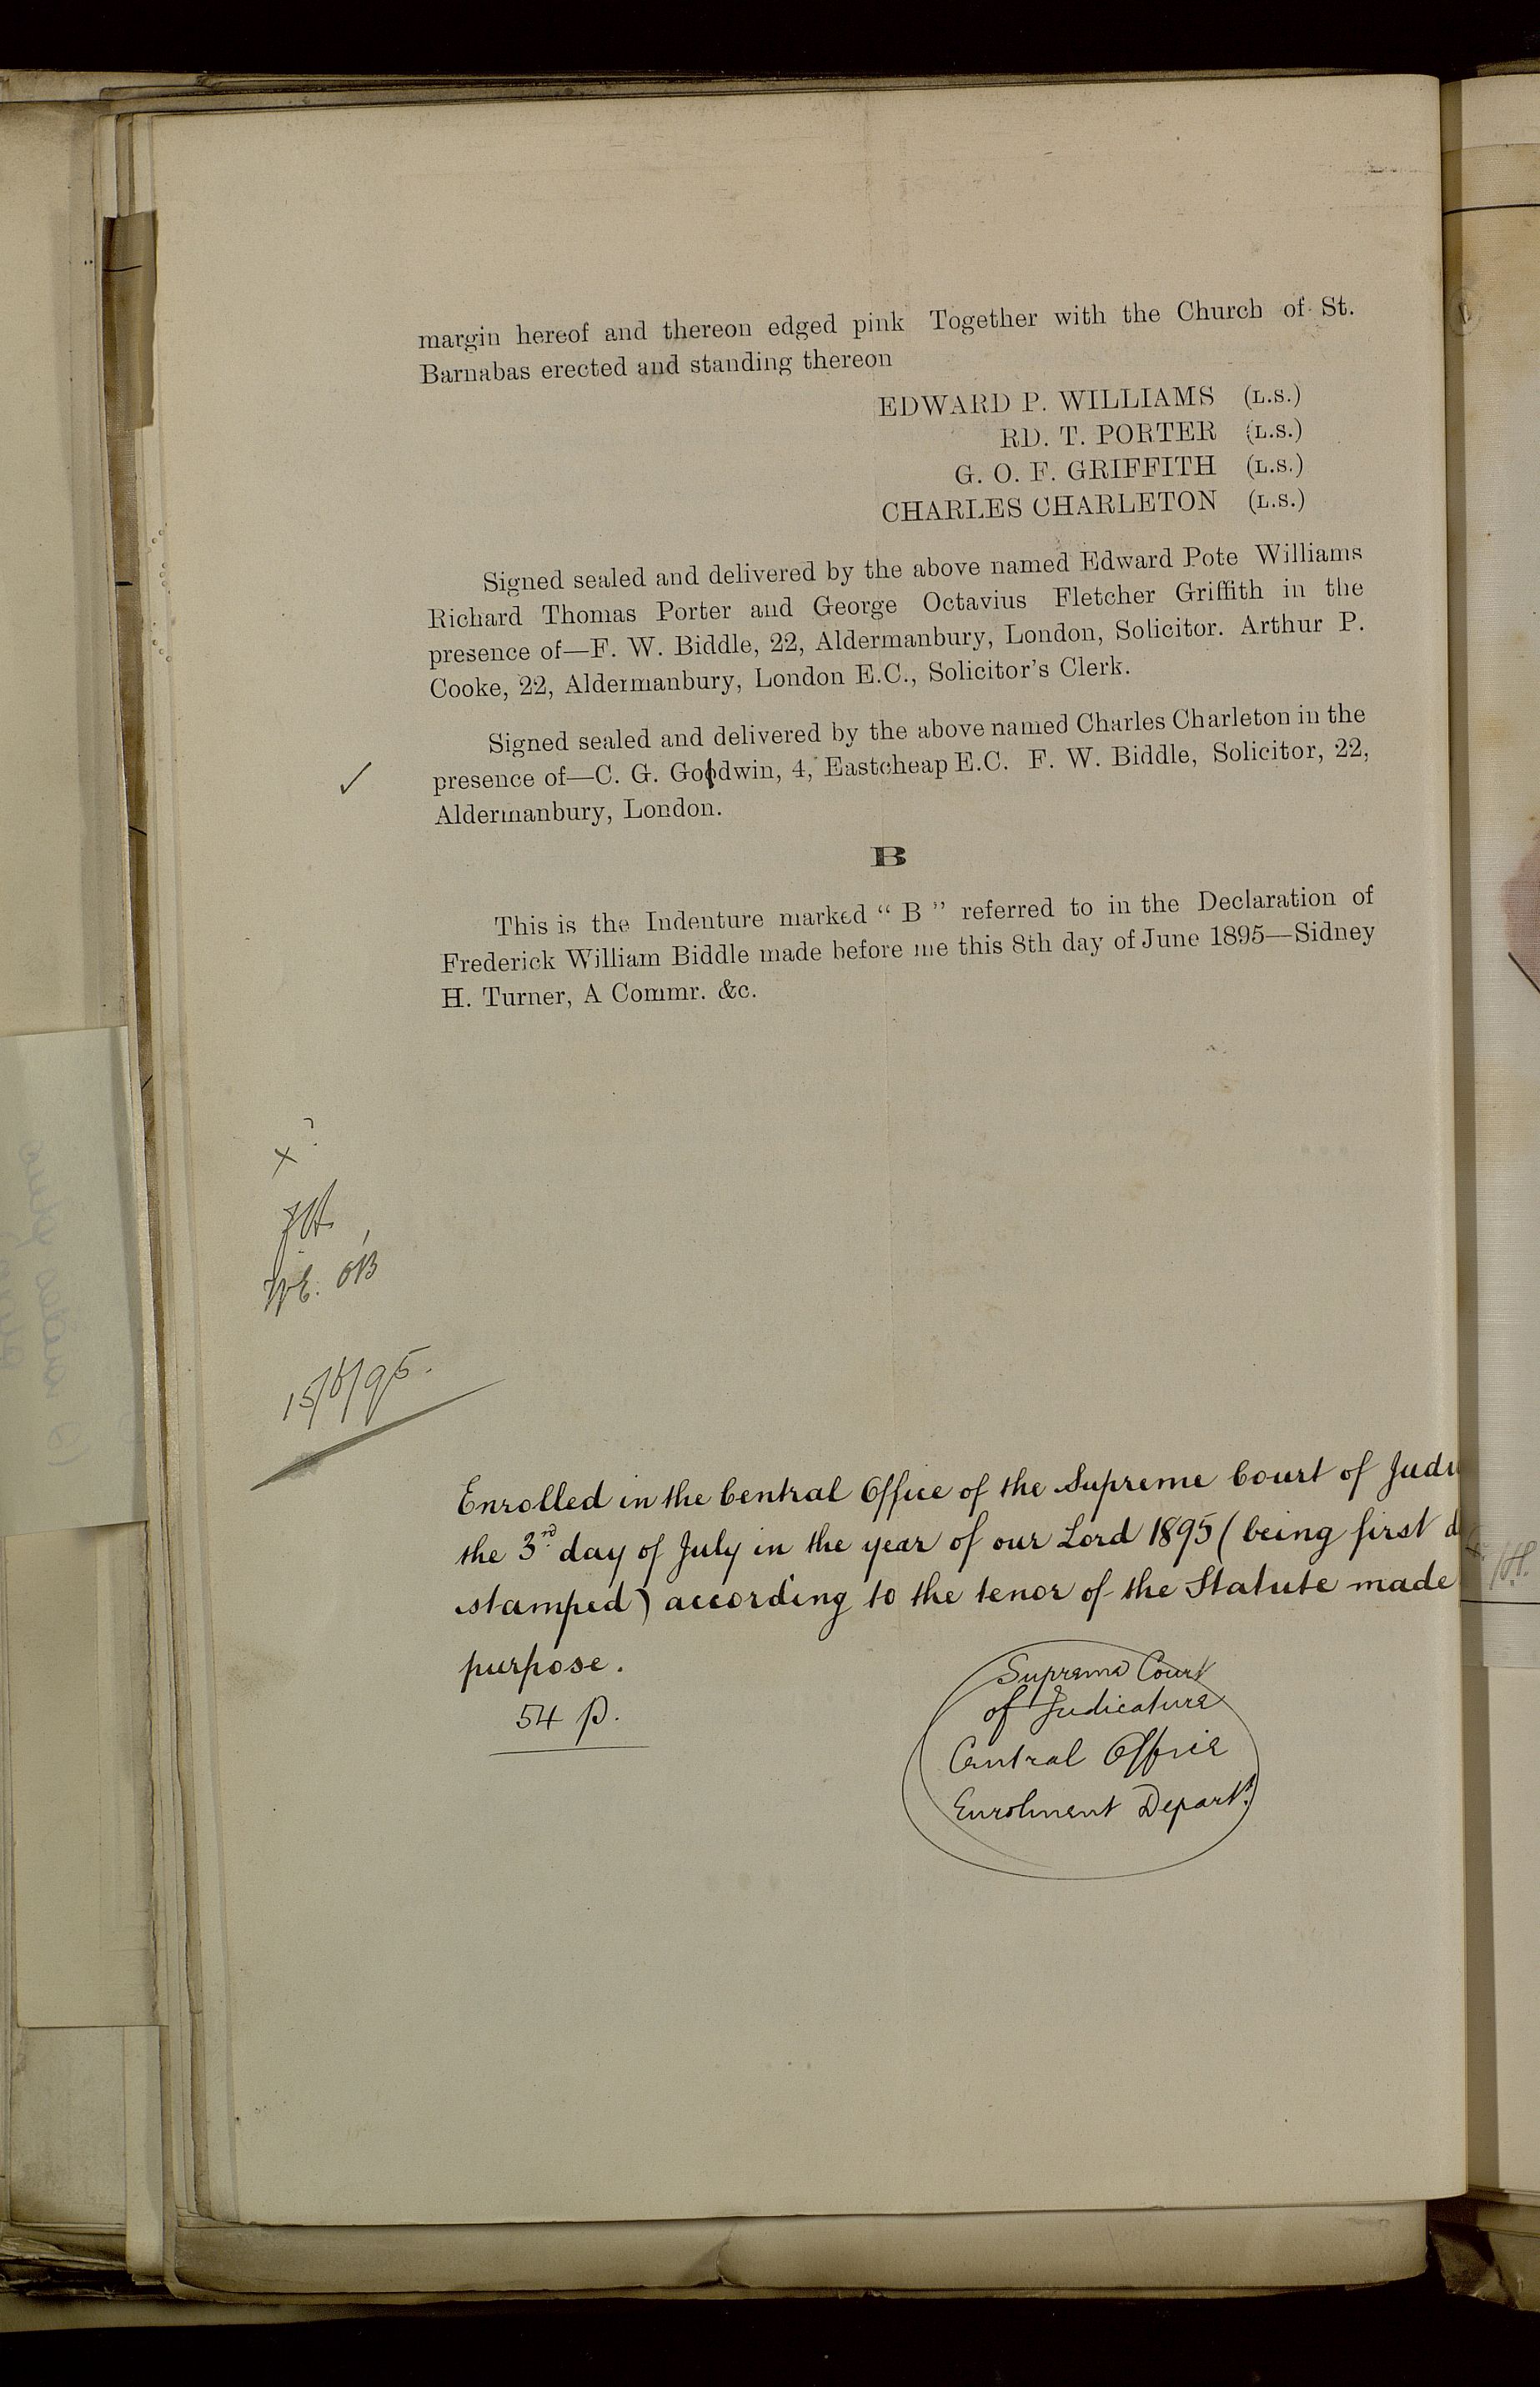 margin hereof and thereon edged pink Together with the Church of St.
Barnabas erected and standing thereon
EDWARD P. WILLIAMS (L.S.)
RD. T. PORTER (L.S.)
G. O. F. GRIFFITH (L.S.)
CHARLES CHARLETON (L.S.)
Signed sealed and delivered by the above named Edward Pote Williams
Richard Thomas Porter and George Octavius Fletcher Griffith in the
presence of—F. W. Biddle, 22, Aldermanbury, London, Solicitor. Arthur P.
Cooke, 22, Aldermanbury, London E.C., Solicitor's Clerk.
Signed sealed and delivered by the above named Charles Charleton in the
presence of—C. G. Godwin, 4, Eastcheap E.C. F. W. Biddle, Solicitor, 22,
Aldermanbury, London.
B
This is the Indenture marked “ B ” referred to in the Declaration of
Frederick William Biddle made before me this 8th day of June 1895—Sidney
H. Turner, A Commr. &c.
x ?
15/6/95.
Enrolled in the Central Office of the Supreme Court of
the 3rd day of July in the year of our Lord 1895 (being first
stamped) according to the tenor of the Statute made
purpose.
54 p.
Supreme Court
of Judicature
Central Office
Enrolment Depart.